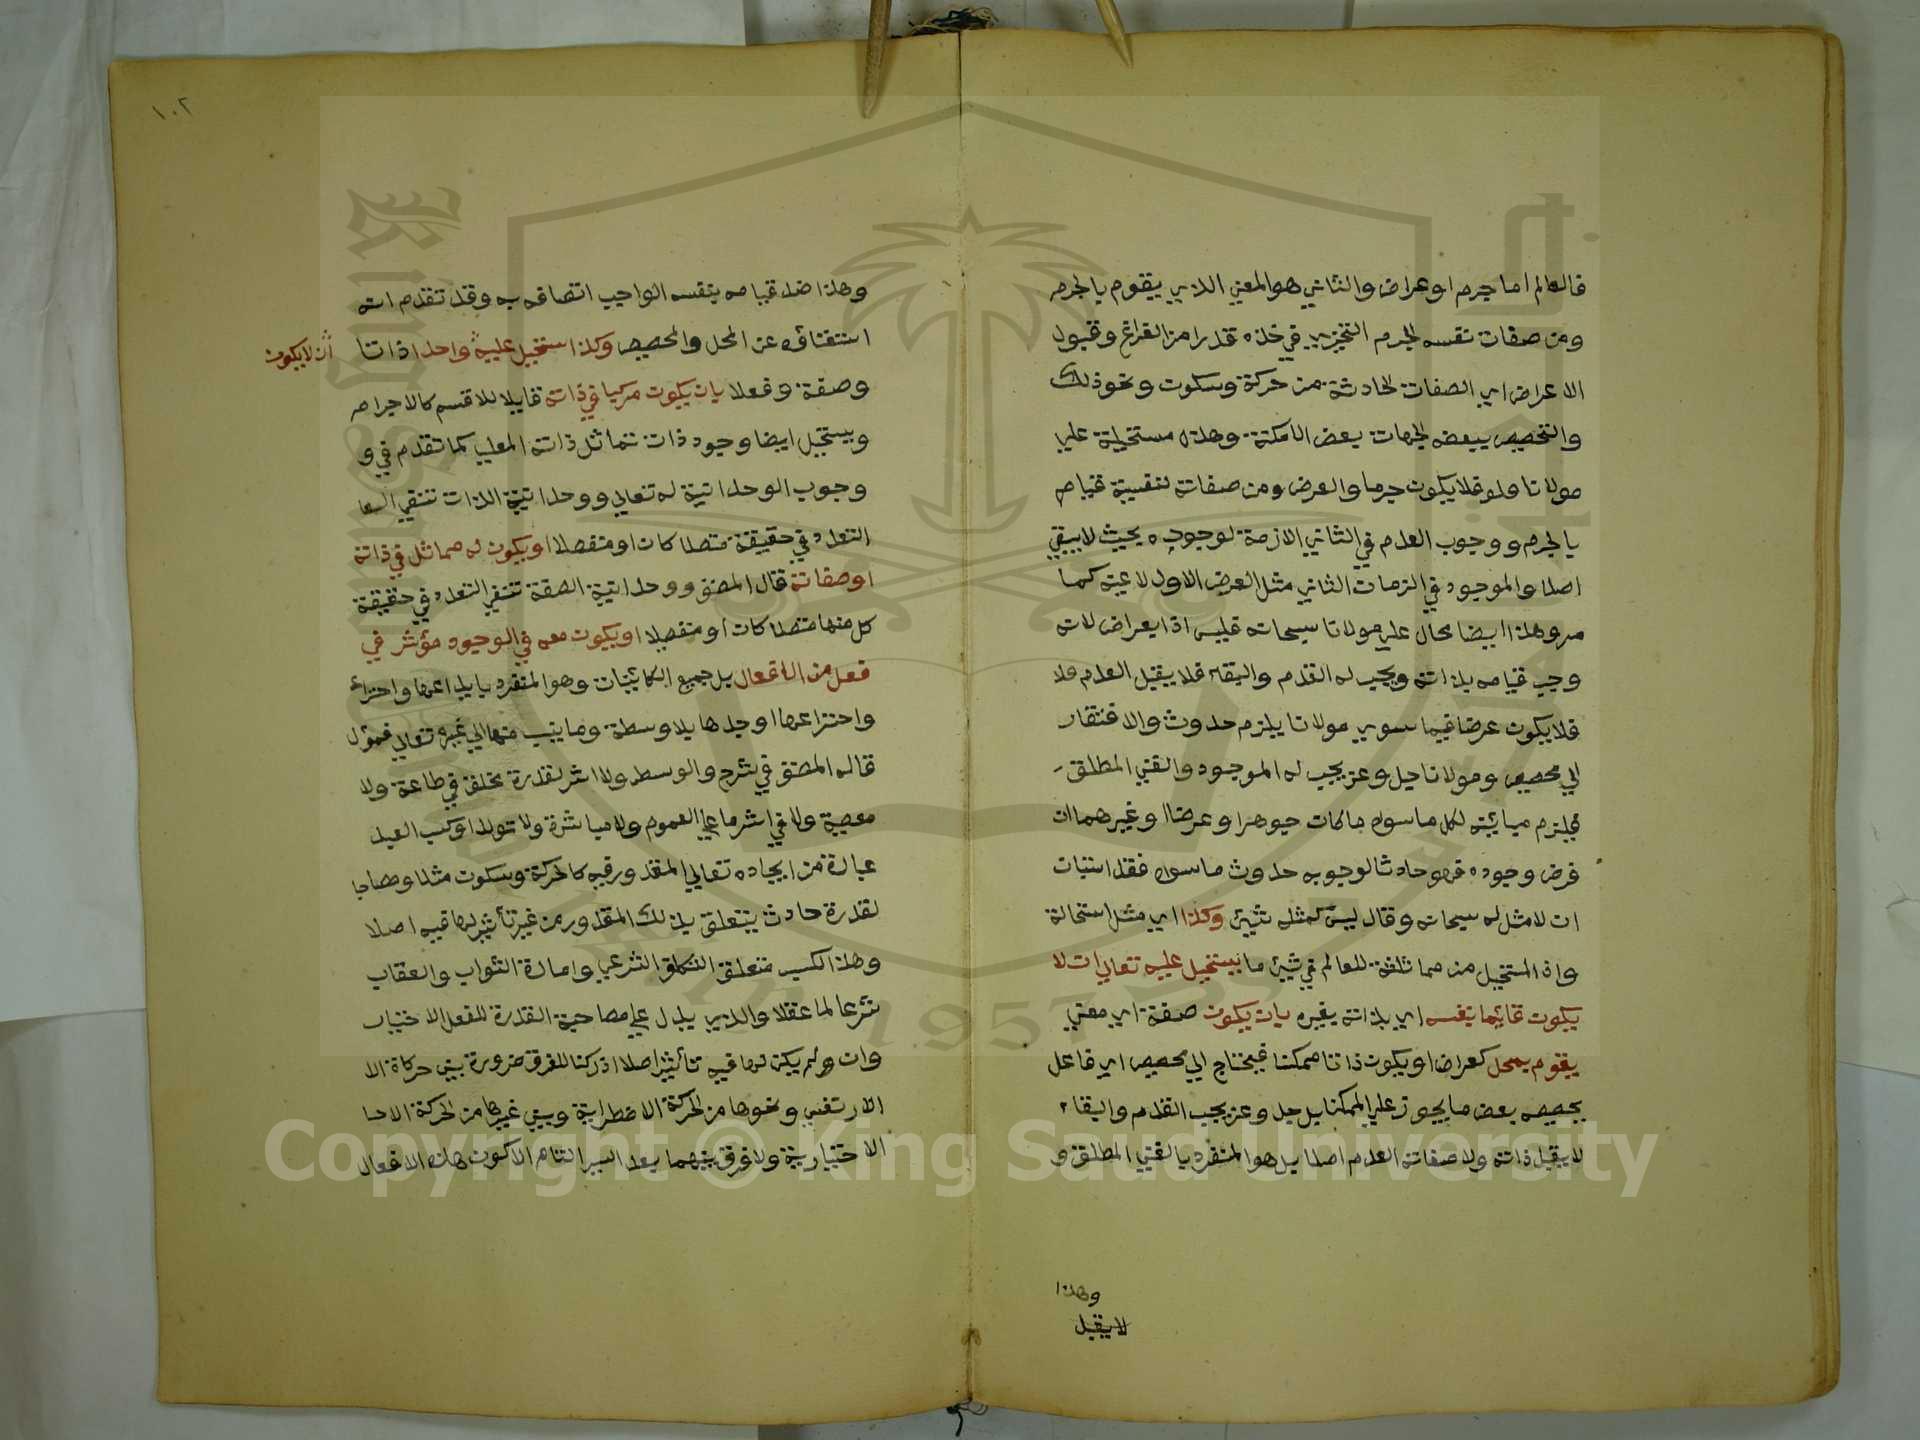 فالعالم اما جرم او عراض والثاني هو المعني الذي يقوم بالجرم
ومن صفات نفسه الجرم التحيز اي في خذه قدرا من الفراغ وقبول
الاعراض اي الصفات الحادثة من حركة وسكون ونحو ذلك
والتخصيص ببعض الجهات بعض الامكنة وهذه مستحيلة علي
مولانا ولو فلا يكون جرما والعرض ومن صفات لنفسية قيام
بالجرم ووجوب العدم في الثاني الازمة لوجوده بحيث لا يبقي
اصلا والموجود في الزمان الثاني مثل العرض الاول لا عينه كما
مر وهذا ايضا محال علي مولانا سبحانه فليس اذا بعراض لانه
وجب قيامه بذاته ويجب له القدم والبقاء فلا يقبل العدم فلا
فلا يكون عرضا فيما سوي مولانا يلزم حدوث والافتقار
الي مخصص ومولانا جل وعز يجب له الموجود والغني المطلق
فيلزم مباينته لكل ما سواه ما كان جوهرا وعرضا وغيرهما ان
فرض وجوده فهو حادثا لوجوب حدوث ما سواه فقد استبان
ان لا مثل له سبحانه وقال ليس كمثله شيئ وكذا اي مثل استحالة
واذ المستحيل من مماثلثة للعالم في شيئ ما يستحيل عليه تعالي ان لا
يكون قائما بنفسه اي بذاته بغيره بان يكون صفة اي معني
يقوم بمحل كعراض او يكون ذاتا ممكنا فيحتاج الي مخصص اي فاعل
يخصصه بعض ما يجوز علي الممكنا بل جل وعز يجب القدم والبقاء
لا يقبل ذاته ولا صفاته العدم اصلا بل هو المنفرد بالغني المطلق و
وهذا
لا يقبل
١٠٢
وهذا ضد قيامه بنفسه الواجب اتصافه به وقد تقدم انه
استغناؤه عن المحل والمخصص وكذا استحيل عليه واحدا ذاتا
ان لا يكون
وصفة وفعلا بان يكون مركبا في ذاته قابلا للاقسم كالاجرام
ويستحيل ايضا وجود ذات تماثل ذاته المعلي كما تقدم في و
وجوب الوحدانية له تعالي ووحدانية الذات تنفي التعا
التعدد في حقيقة متصلا كان او منفصلا او يكون له مماثل في ذاته
او صفاته قال المصنف ووحدانية الصفة تنفي التعدد في حقيقة
كل منها متصلا كان او منفصلا او يكون معه في الوجود مؤثر في
فعل من الافعال بل جميع الكائنات وهو المنفرد بايداعها واختراع
واختراعها اوجدها بلا وسطة وما ينسب منها الي غيره تعالي فمؤل
قاله المصنف في شرح والوسط ولا اثر لقدرة نخلف في طاعة ولا
معصية ولا في اثر ما علي العموم ولا مباشرة ولا تولدا وكسب العبد
عبارة من ايجاده تعالي المقدور فيه كالحركة وسكون مثلا ومصاحبا
لقدرة حادث يتعلق بذلك المقدور من غير تأثير لها فيه اصلا
وهذا الكسب متعلق التكلف الشرعي وامارة الثواب والعقاب
شرعا لما عقلا والذي يدل علي مصاحبة القدرة للفعل الاختيار
وان ولم يكن لها فيه تأثيرا اصلا ادركنا للفرق ضرورة بين حركاة الا
الارتعش ونحوها من الحركة الاضطراية وبين غيرها من الحركة الاحا
الاختيارية ولا فرق بينهما بعد السير التام الا كون هذه الافعال
Copyright © King Saud University
1957